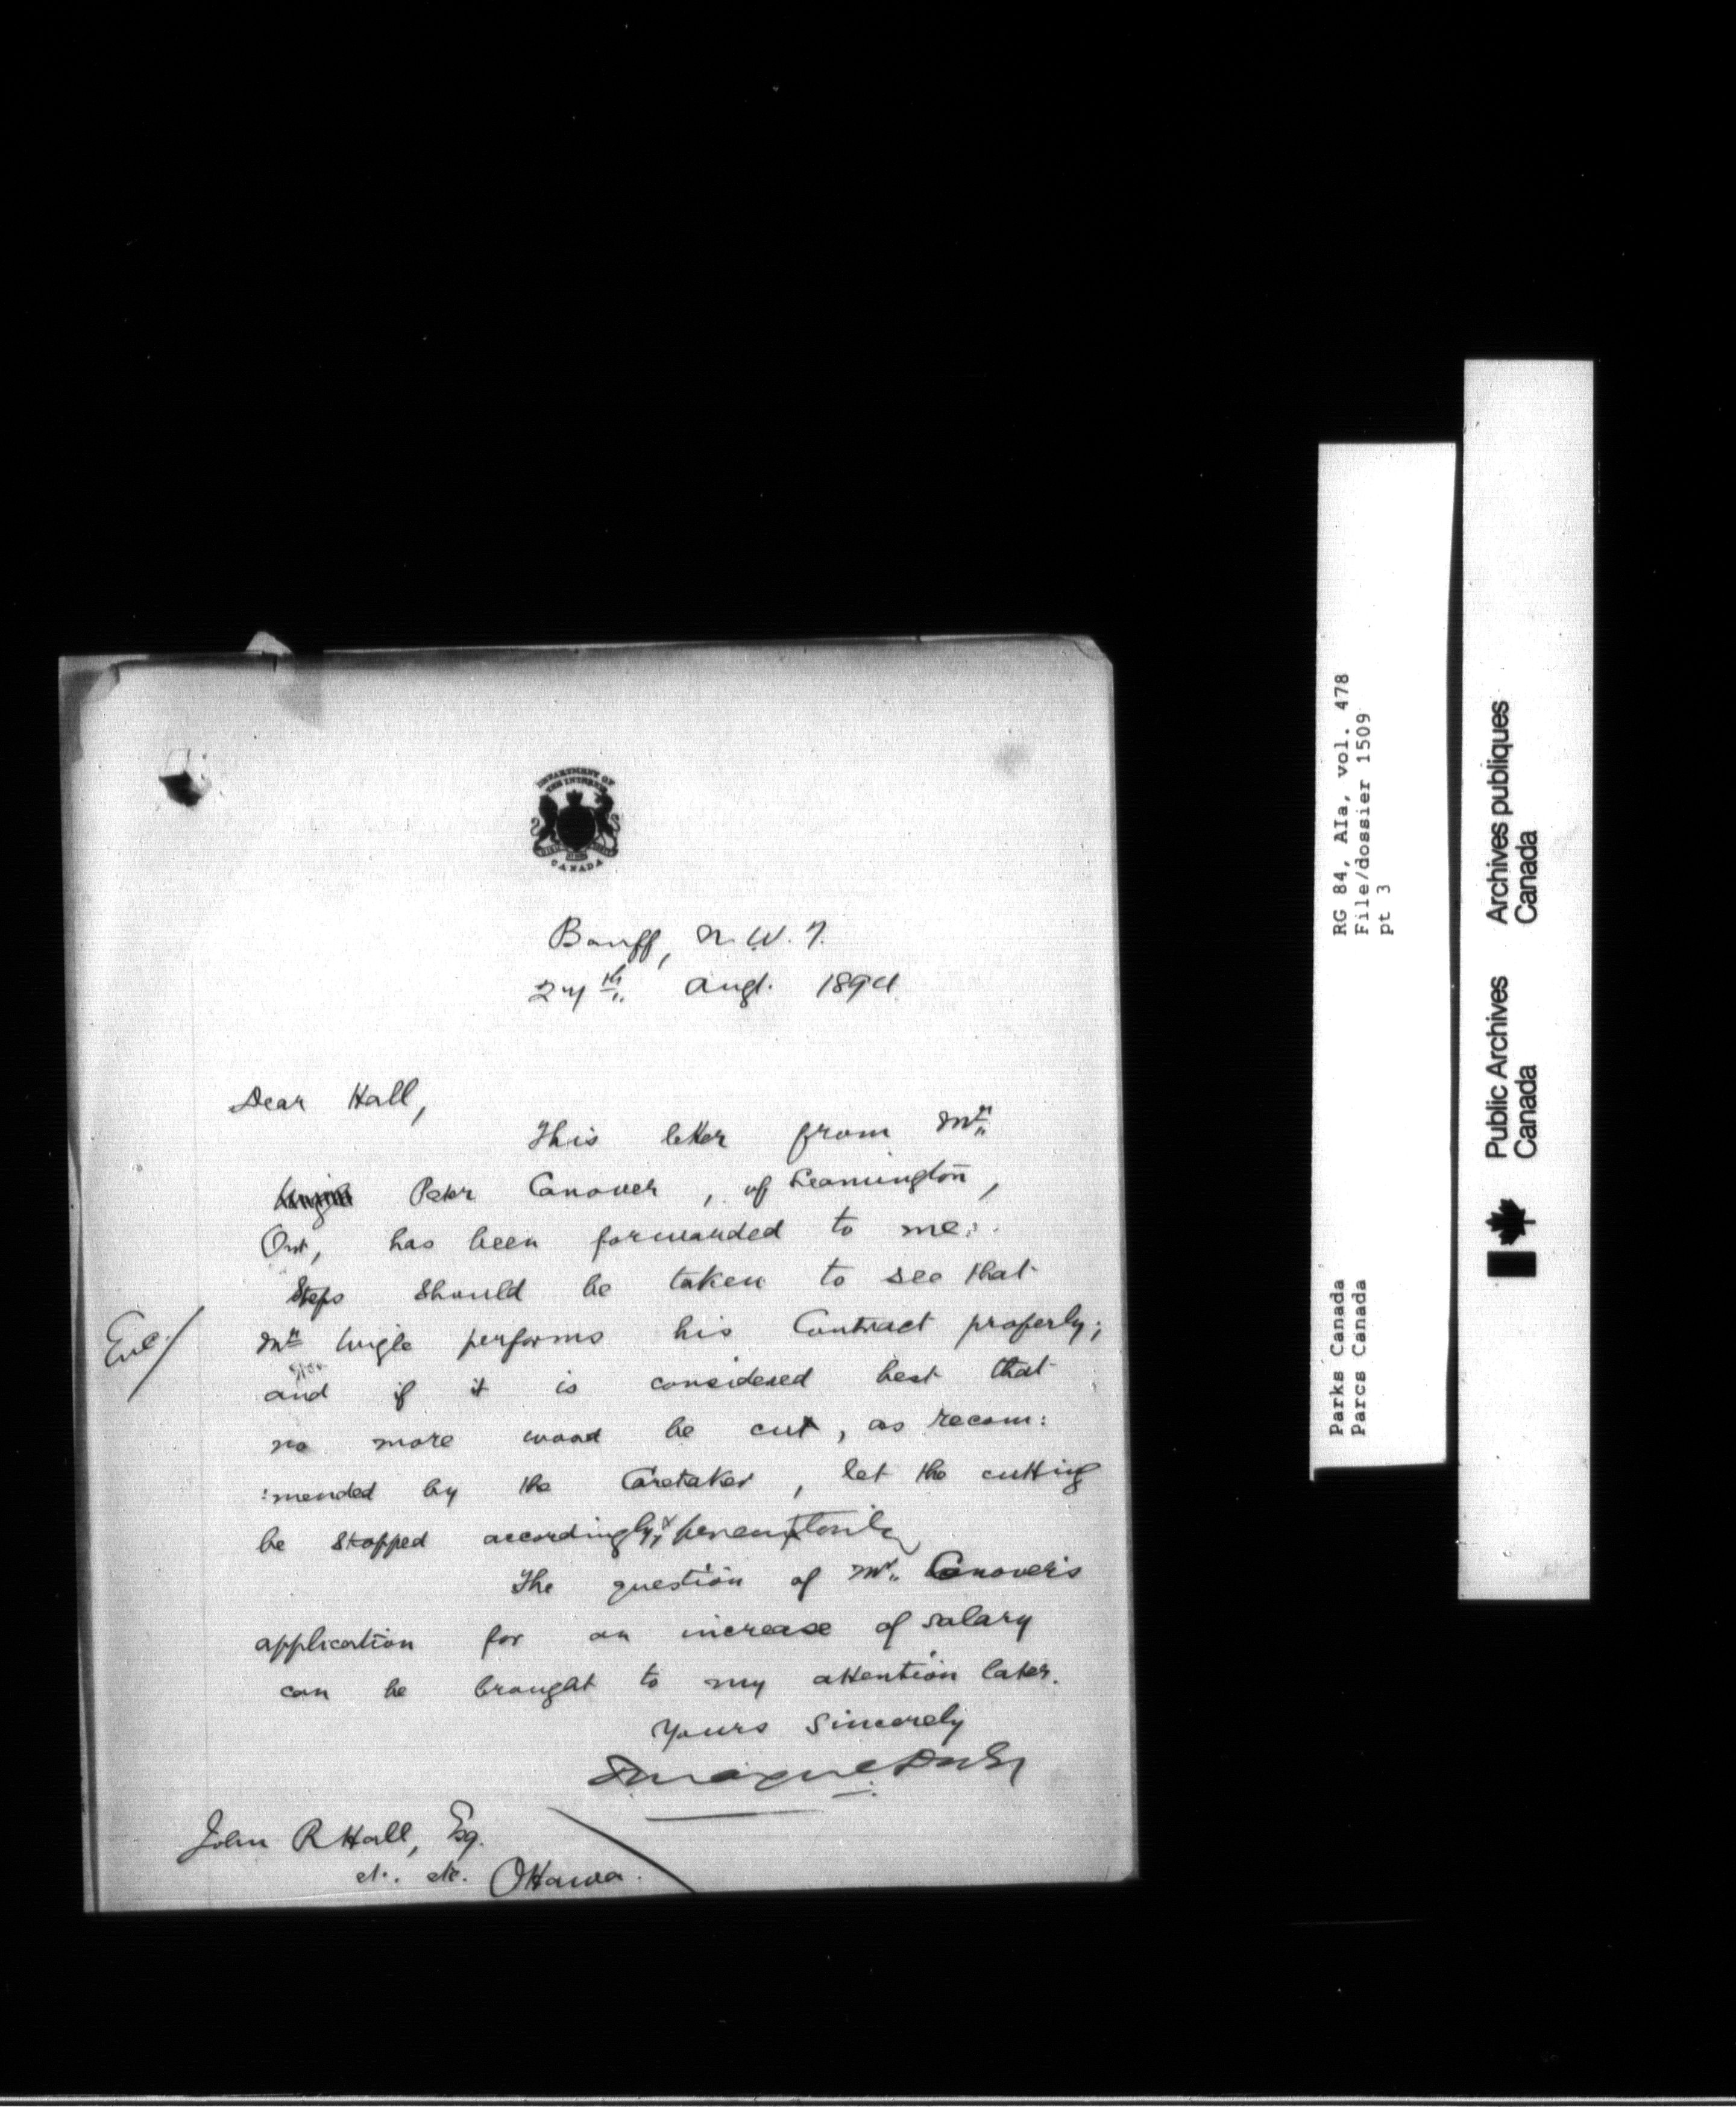 DEPARTMENT OF
THE INTERIOR
CANADA
Banff, N.W.T.
27th Augt. 1894
Dear Hall,
This letter from Mr.
Peter Conover, of Leamington,
Ont, has been forwarded to me.
Steps should be taken to see that
Mr Wigle performs his Contract properly;
Encl/
and if it is considered best that
no more wood be cut, as recom:
:mended by the Caretaker, let the cutting
be stopped accordingly, & peremptorily
The question of Mr. Conover's
application for an increase of salary
can be brought to my attention later.
Yours Sincerely
John R Hall, Esq.
etc. etc. Ottawa.
RG 84, AIa, vol. 478
File/dossier 1509
pt 3
Parks Canada
Parcs Canada
Public Archives
Canada
Archives publiques
Canada